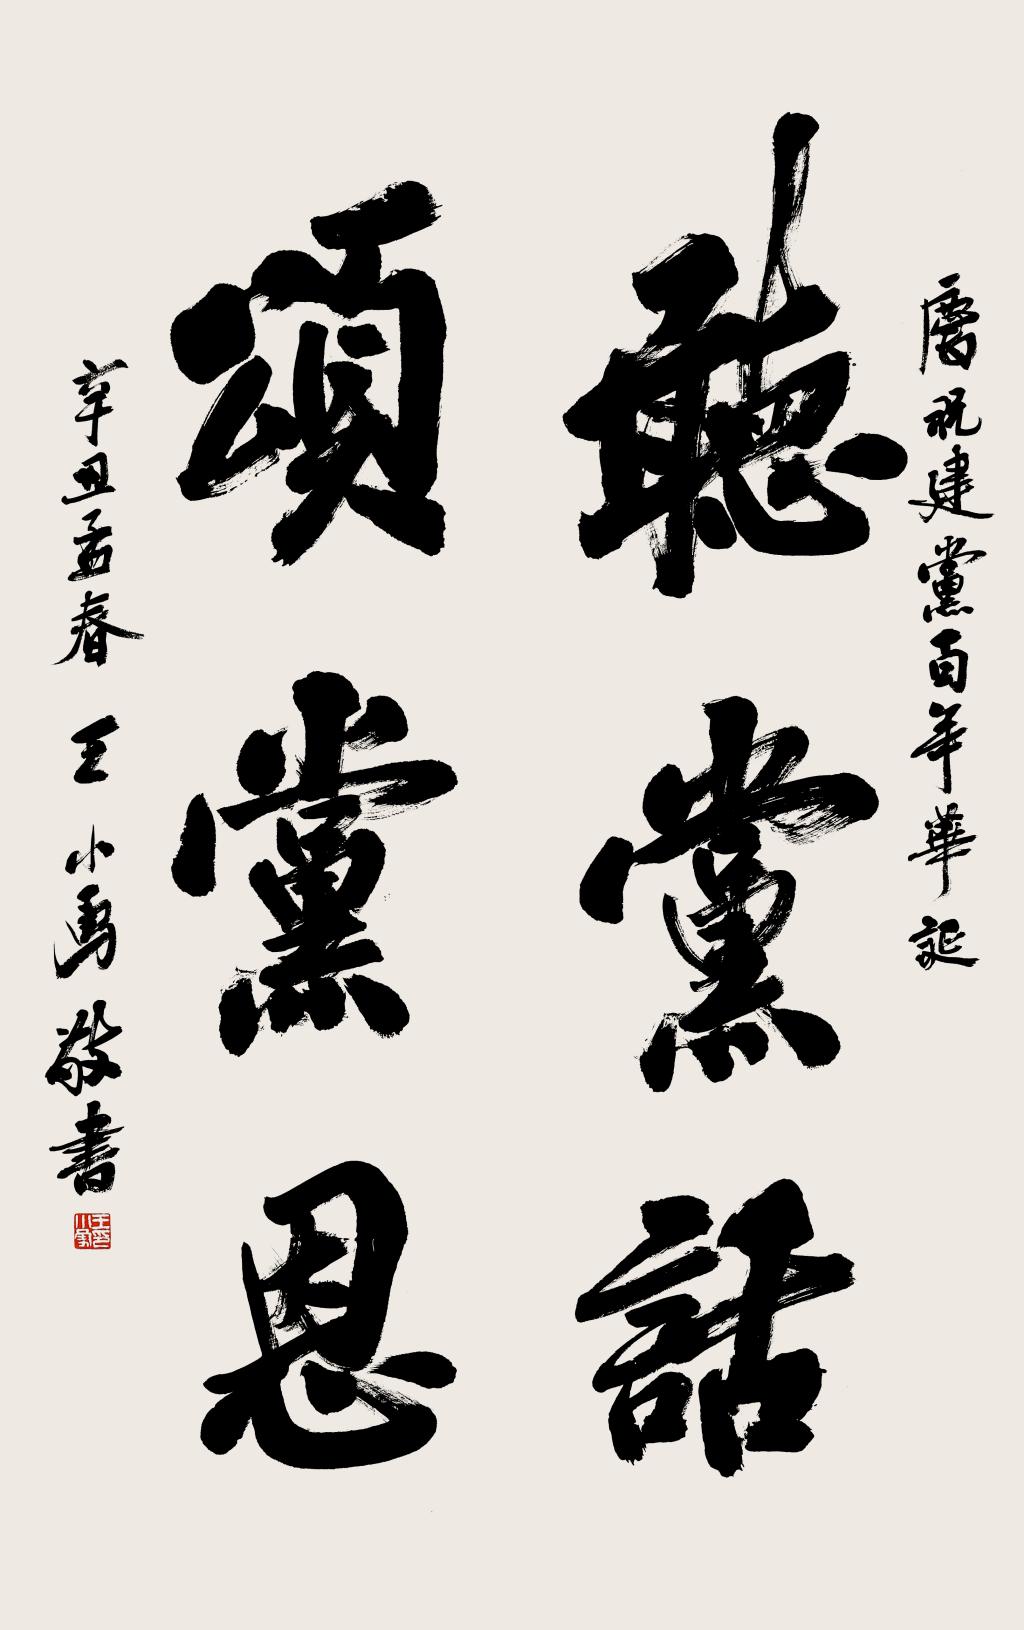 慶祝建黨百年華誕
聽黨話
頌黨恩
辛丑孟春 王小勇敬書